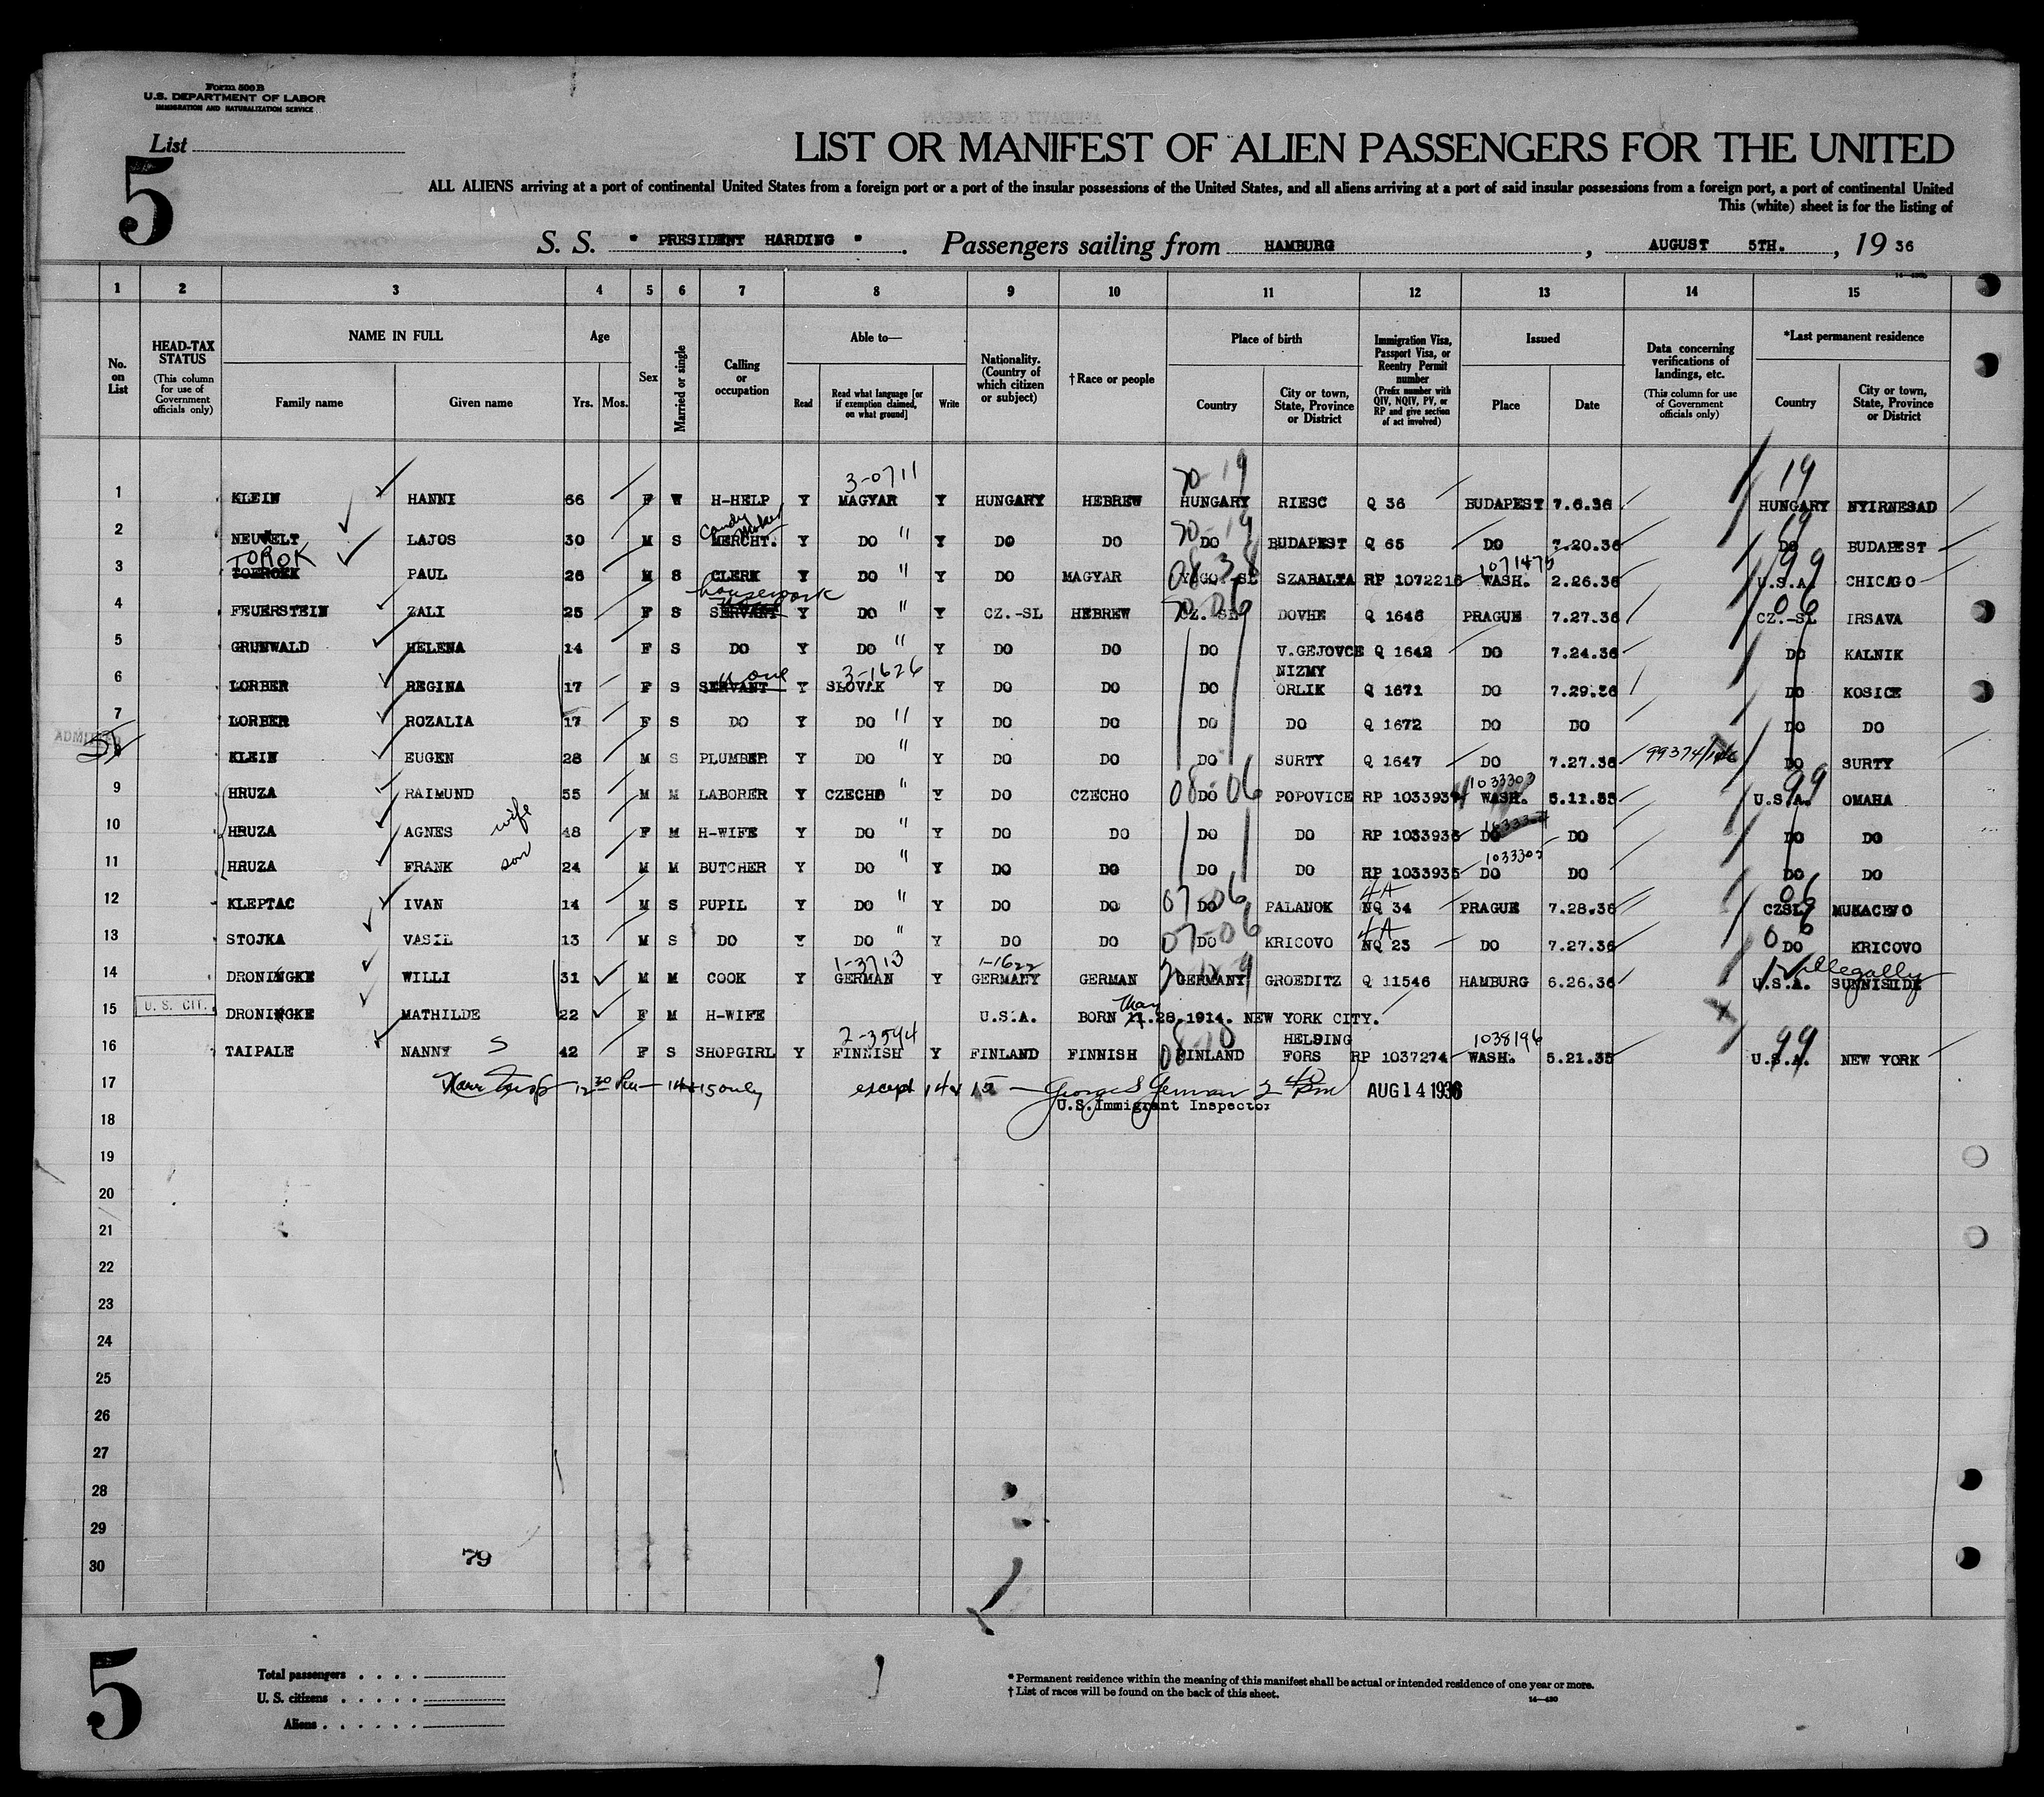 Form 500B
U.S. DEPARTMENT OF LABOR
IMMIGRATION AND NATURALIZATION SERVICE
List
5
LIST OR MANIFEST OF ALIEN PASSENGERS FOR THE UNITED
ALL ALIENS arriving at a port of continental United States from a foreign port or a port of the insular possessions of the United States, and all aliens arriving at a port of said insular possessions from a foreign port, a port of continental United
This (white) sheet is for the listing of
S. S. " PRESIDENT HARDING ". Passengers sailing from HAMBURG, AUGUST 5TH., 19 36
1 2 3 4 5 6 7 8 9 10 11 12 13 14 15
No. on List
HEAD-TAX STATUS (This column for use of Government officials only)
NAME IN FULL Family name Given name
Age Yrs. Mos.
Sex
Married or single
Calling or occupation
Able to— Read Read what language [or if exemption claimed, on what ground] Write
Nationality. (Country of which citizen or subject)
†Race or people
Place of birth Country City or town, State, Province or District
Immigration Visa, Passport Visa, or Reentry Permit number (Prefix number with QIV, NQIV, PV, or RP and give section of act involved)
Issued Place Date
Data concerning verifications of landings, etc. (This column for use of Government officials only)
*Last permanent residence Country City or town, State, Province or District
3-0711 70-19 19
1 KLEIN HANNI 66 F W H-HELP Y MAGYAR Y HUNGARY HEBREW HUNGARY RIESC Q 36 BUDAPEST 7.6.36 HUNGARY NYIRNESAD
Candy Maker 70-19 19
2 NEUWELT LAJOS 30 M S MERCHT. Y DO " Y DO DO DO BUDAPEST Q 65 DO 7.20.36 DO BUDAPEST
TOROK 08-38 1071475 99
3 TOEROEK PAUL 26 M S CLERK Y DO " Y DO MAGYAR YUGO.-SL SZABALYA RP 1072216 WASH. 2.26.36 U.S.A. CHICAGO
housework 70-06 06
4 FEUERSTEIN ZALI 25 F S SERVANT Y DO " Y CZ.-SL HEBREW CZ.-SL DOVHE Q 1646 PRAGUE 7.27.36 CZ.-SL IRSAVA
5 GRUNWALD HELENA 14 F S DO Y DO " Y DO DO DO V.GEJOVCE Q 1642 DO 7.24.36 DO KALNIK
none 3-1626
6 LORBER REGINA 17 F S SERVANT Y SLOVAK Y DO DO DO NIZMY ORLIK Q 1671 DO 7.29.36 DO KOSICE
7 LORBER ROZALIA 17 F S DO Y DO " Y DO DO DO DO Q 1672 DO DO DO DO
ADMITTED
8 KLEIN EUGEN 28 M S PLUMBER Y DO " Y DO DO DO SURTY Q 1647 DO 7.27.36 DO SURTY
08-06 1033303 99
9 HRUZA RAIMUND 55 M M LABORER Y CZECHO " Y DO CZECHO DO POPOVICE RP 1033934 WASH. 5.11.35 U.S.A. OMAHA
wife
10 HRUZA AGNES 48 F M H-WIFE Y DO " Y DO DO DO DO RP 1033936 DO DO DO DO
son 1033305
11 HRUZA FRANK 24 M M BUTCHER Y DO " Y DO DO DO DO RP 1033935 DO DO DO DO
07-06 4A 06
12 KLEPTAC IVAN 14 M S PUPIL Y DO " Y DO DO DO PALANOK NQ 34 PRAGUE 7.28.36 CZSL MUKACEVO
07-06 4A 06
13 STOJKA VASIL 13 M S DO Y DO " Y DO DO DO KRICOVO NQ 23 DO 7.27.36 DO KRICOVO
1-3713 1-1622 illegally
14 DRONINGKE WILLI 31 M M COOK Y GERMAN Y GERMANY GERMAN GERMANY GROEDITZ Q 11546 HAMBURG 6.26.36 U.S.A. SUNNISIDE
U. S. CIT. May
15 DRONINGKE MATHILDE 22 F M H-WIFE U.S.A. BORN 11.28.1914. NEW YORK CITY.
S 2-3594 08-10 1038196 99
16 TAIPALE NANNY 42 F S SHOPGIRL Y FINNISH Y FINLAND FINNISH FINLAND HELSING FORS RP 1037274 WASH. 5.21.35 U.S.A. NEW YORK
17 14+15 only except 14 & 15 — George S German AUG 14 1936
U.S.Immigrant Inspector
18
19
20
21
22
23
24
25
26
27
28
29
30
79
5
Total passengers . . . .
U. S. citizens . . . . .
Aliens . . . . . .
* Permanent residence within the meaning of this manifest shall be actual or intended residence of one year or more.
† List of races will be found on the back of this sheet.
14—430